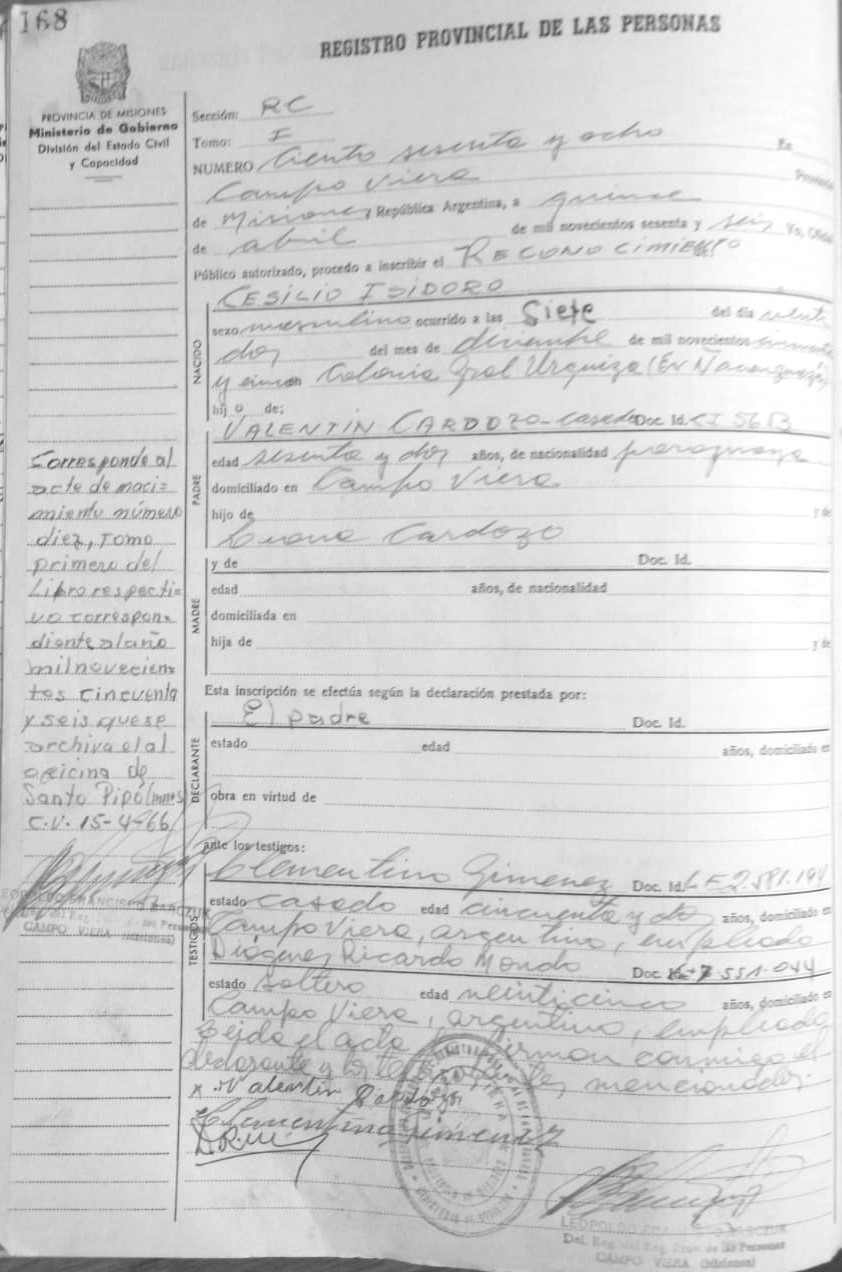 168
REGISTRO PROVINCIAL DE LAS PERSONAS
PROVINCIA DE MISIONES
Ministerio de Gobierno
División del Estado Civil
y Capacidad
Sección: RC
Tomo: I
NUMERO Ciento sesenta y ocho En
Campo Viera Provincia
de Misiones, República Argentina, a quince
de abril de mil novecientos sesenta y seis Yo, Oficial
Público autorizado, procedo a inscribir el RECONOCIMIENTO
CESILIO ISIDORO
NACIDO
sexo masculino ocurrido a las Siete del día veinti
dos del mes de diciembre de mil novecientos cincuenta
y cinco en Colonia Gral Urquiza
hijo de;
VALENTIN CARDOZO - casado Doc. Id. CI 5653
PADRE
edad sesenta y dos años, de nacionalidad paraguaya
domiciliado en Campo Viera
hijo de y de
Cardozo
MADRE
y de Doc. Id.
edad años, de nacionalidad
domiciliada en
hija de y de
Esta inscripción se efectúa según la declaración prestada por:
DECLARANTE
El padre Doc. Id.
estado edad años, domiciliado en
obra en virtud de
ante los testigos:
TESTIGOS
Clementino Gimenez Doc. Id. LE 2.581.194
estado casado edad cincuenta y dos años, domiciliado en
Campo Viera, argentino, empleado
Diógenes Ricardo Mondo Doc. 7.551.044
estado soltero edad veinticinco años, domiciliado en
Campo Viera, argentino, empleado
Leida el acta firman conmigo el
declarante y los testigos mencionados.
x Valentin Cardozo
Clementino Gimenez
DRM
Corresponde al
acta de naci=
miento número
diez, Tomo
primero del
Libro respecti=
vo correspon=
diente al año
mil novecien=
tos cincuenta
y seis que se
archiva el al
oficina de
Santo Pipó
C.V. 15-4-66
LEOPOLDO FRANCISCO BARCZUK
Del. Reg. del Reg. Prov. de las Personas
CAMPO VIERA (Misiones)
LEOPOLDO FRANCISCO BARCZUK
Del. Reg. del Reg. Prov. de las Personas
CAMPO VIERA (Misiones)